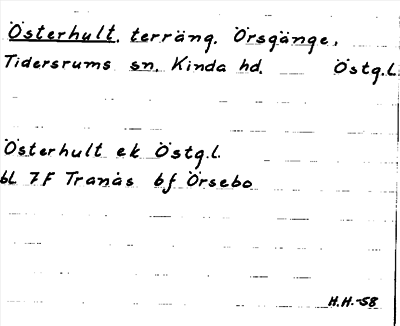 Österhult, terräng. Örsgänge,
Tidersrums sn. Kinda hd. Östg.l.
Österhult ek Östg.l.
bl 7F Tranås bf Örsebo
H.H.-58